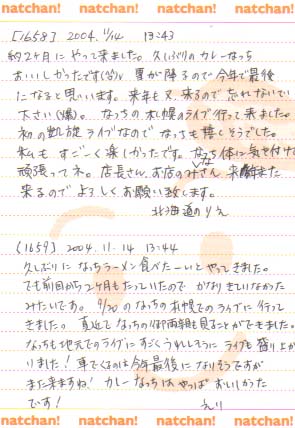 natchan! natchan! natchan! natchan!
[1658] 2004. 11/14 13:43
約2ヶ月にやって来ました。久しぶりのカレーなっち
おいしかったです(^o^)ノ 雪が降るので今年で最後
になると思います。来年も又、来るので忘れないで
下さい(笑)。なっちの札幌のライブ行って来ました。
初の凱旋ライブなのでなっちも嬉しそうでした。
私もすごーく楽しかったです。なっち体に気を付けて
頑張ってネ。店長さん、お店のみなさん 来年また
来るのでよろしくお願い致します。
北海道のりえ
[1659] 2004. 11. 14 13:44
久しぶりになっちラーメン食べたーいとやってきました。
でも前回から2ヶ月もたっていたのでかなりきていなかった
みたいです。9/20のなっちの札幌でのライブに行って
きました。直近でなっちの御両親も見ることができました。
なっちも地元でのライブにすごくうれしそうにライブも盛り上が
りました!車でくるのは今年最後になりそうですが
また来ますね!カレーなっちはやっぱおいしかった
です! えり
natchan! natchan! natchan! natchan!